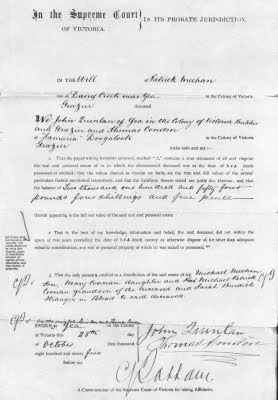 In the Supreme Court
OF VICTORIA.
IN ITS PROBATE JURISDICTION.
IN THE Will Patrick Meehan
late of Dairy Creek near Yea in the Colony of Victoria
Grazier deceased
We John Quinlan of Yea in the Colony of Victoria Butcher
and Grazier and Thomas Condon
of "Tamaria" Doogalook in the Colony of Victoria
Grazier make oath and say:—
1. That the paper-writing hereunto annexed, marked "A," contains a true statement of all and singular
the real and personal estate of or to which the abovenamed deceased was at the time of his death
possessed or entitled; that the values thereof as therein set forth, are the true and full values of the several
particulars therein mentioned respectively, and that the liabilities therein stated are justly due thereon; and that the
balance of Two thousand one hundred and fifty four
pounds four shillings and five pence
thereby appearing is the full net value of the said real and personal estate.
2. That to the best of my knowledge, information and belief, the said deceased did not within the
space of two years preceding the date of his death convey or otherwise dispose of, for other than adequate
valuable consideration, any real or personal property of which he was seized or possessed.
3. That the only persons entitled to distribution of the said estate are Michael Meehan
Son Mary Coonan daughter and Michael Patrick
Coonan grandson of the deceased and Sarah
Stranger in Blood to said deceased
SWORN at Yea in the Colony
of Victoria this 28th day
of October One thousand
eight hundred and ninety five
Before me
John Quinlan
Thomas Condon
A Commissioner of the Supreme Court of Victoria for taking Affidavits.